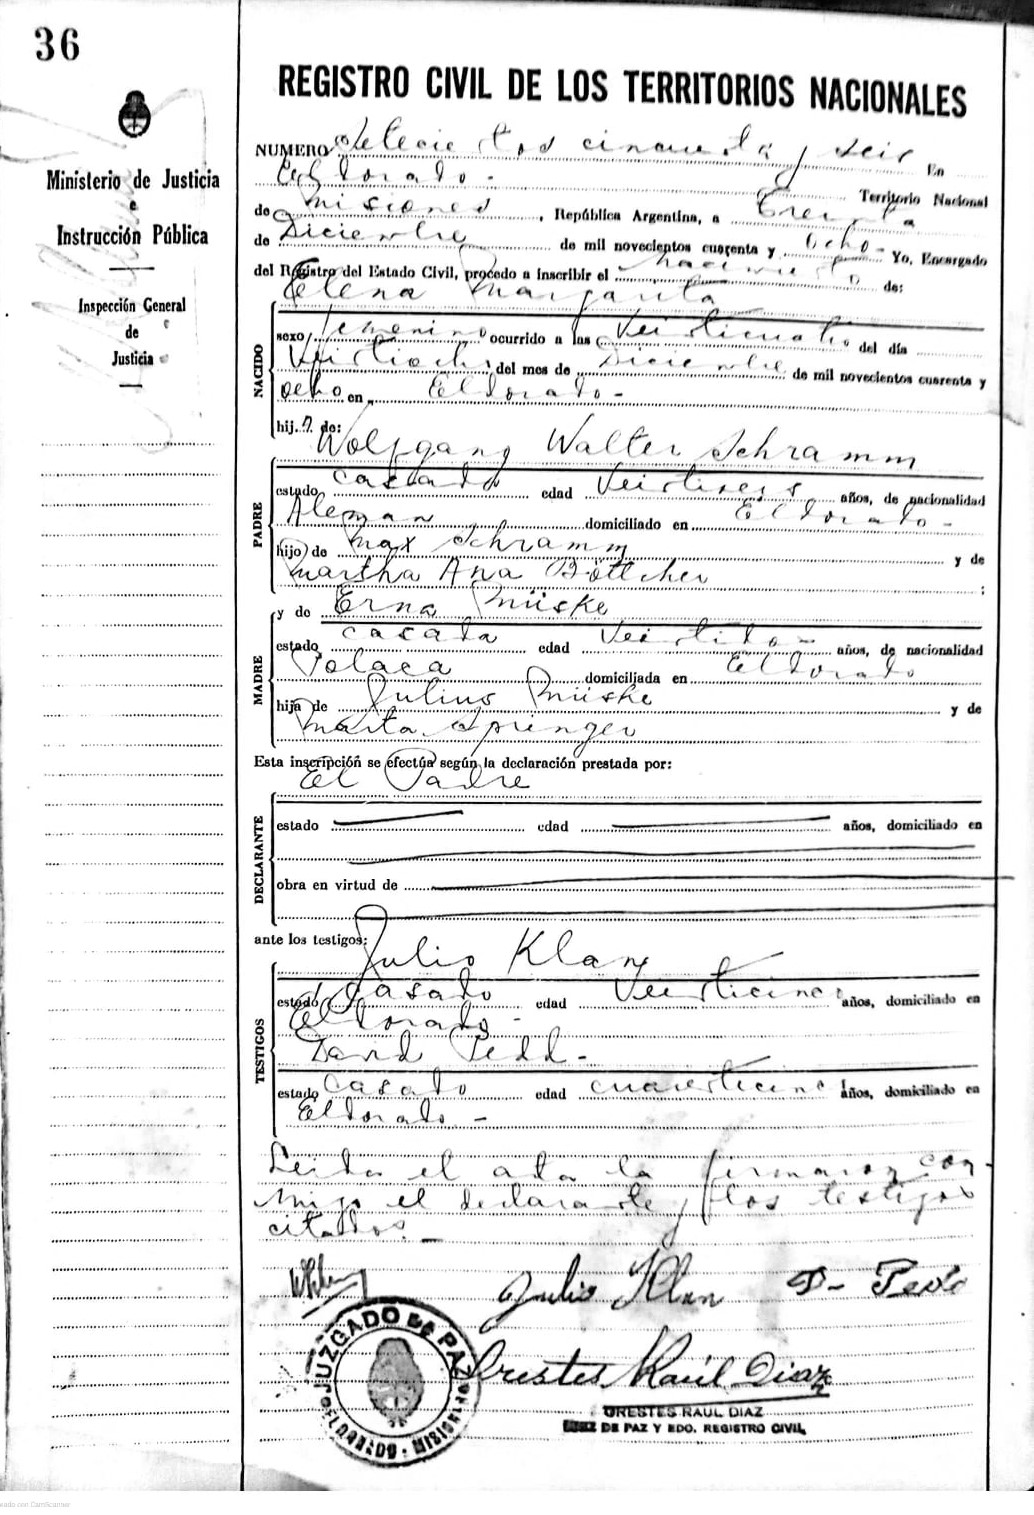 36
Ministerio de Justicia
e
Instrucción Pública
Inspección General
de
Justicia
REGISTRO CIVIL DE LOS TERRITORIOS NACIONALES
NUMERO setecientos cincuenta y seis En
Eldorado - Territorio Nacional
de Misiones, República Argentina, a treinta
de Diciembre de mil novecientos cuarenta y ocho - Yo, Encargado
del Registro del Estado Civil, procedo a inscribir el nacimiento de:
Elena Margarita
NACIDO
sexo femenino ocurrido a las veinticuatro del día
veintiocho del mes de Diciembre de mil novecientos cuarenta y
ocho en Eldorado -
hij a de:
Wolfgang Walter Schramm
PADRE
estado casado edad veintiseis años, de nacionalidad
Aleman domiciliado en Eldorado -
hijo de Max Schramm y de
Martha Ana Böttcher ;
y de Erna Müske
MADRE
estado casada edad veintidos - años, de nacionalidad
Polaca domiciliada en Eldorado
hija de Julius Müske y de
Marta Springer
Esta inscripción se efectúa según la declaración prestada por:
El Padre
DECLARANTE
estado edad años, domiciliado en
obra en virtud de
ante los testigos:
Julio Klan
TESTIGOS
estado casado edad veinticinco años, domiciliado en
Eldorado -
David Pedd -
estado casado edad años, domiciliado en
Eldorado -
Leida el acta la firmaron con-
migo el declarante y los testigos
citados. -
Julio Klan D- Pedd
Orestes Raúl Diaz
JUZGADO DE PAZ
ELDORADO - MISIONES
ORESTES RAUL DIAZ
JUEZ DE PAZ Y EDO. REGISTRO CIVIL
eado con CamScanner